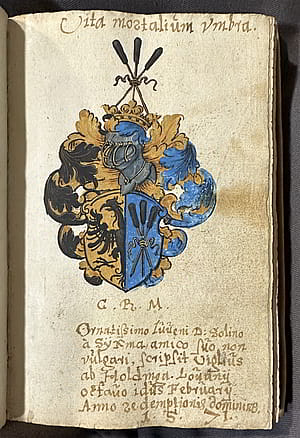 Vita mortalium vmbra.
C. R. M
Ornatissimo Iuveni D. Solino
à Syxma amico suo, non
vulgari, scripsit Viglius
ab Holdinga. Lovanij
octavo idus Februarij
Anno redemptionis dominicæ
1 5 71.